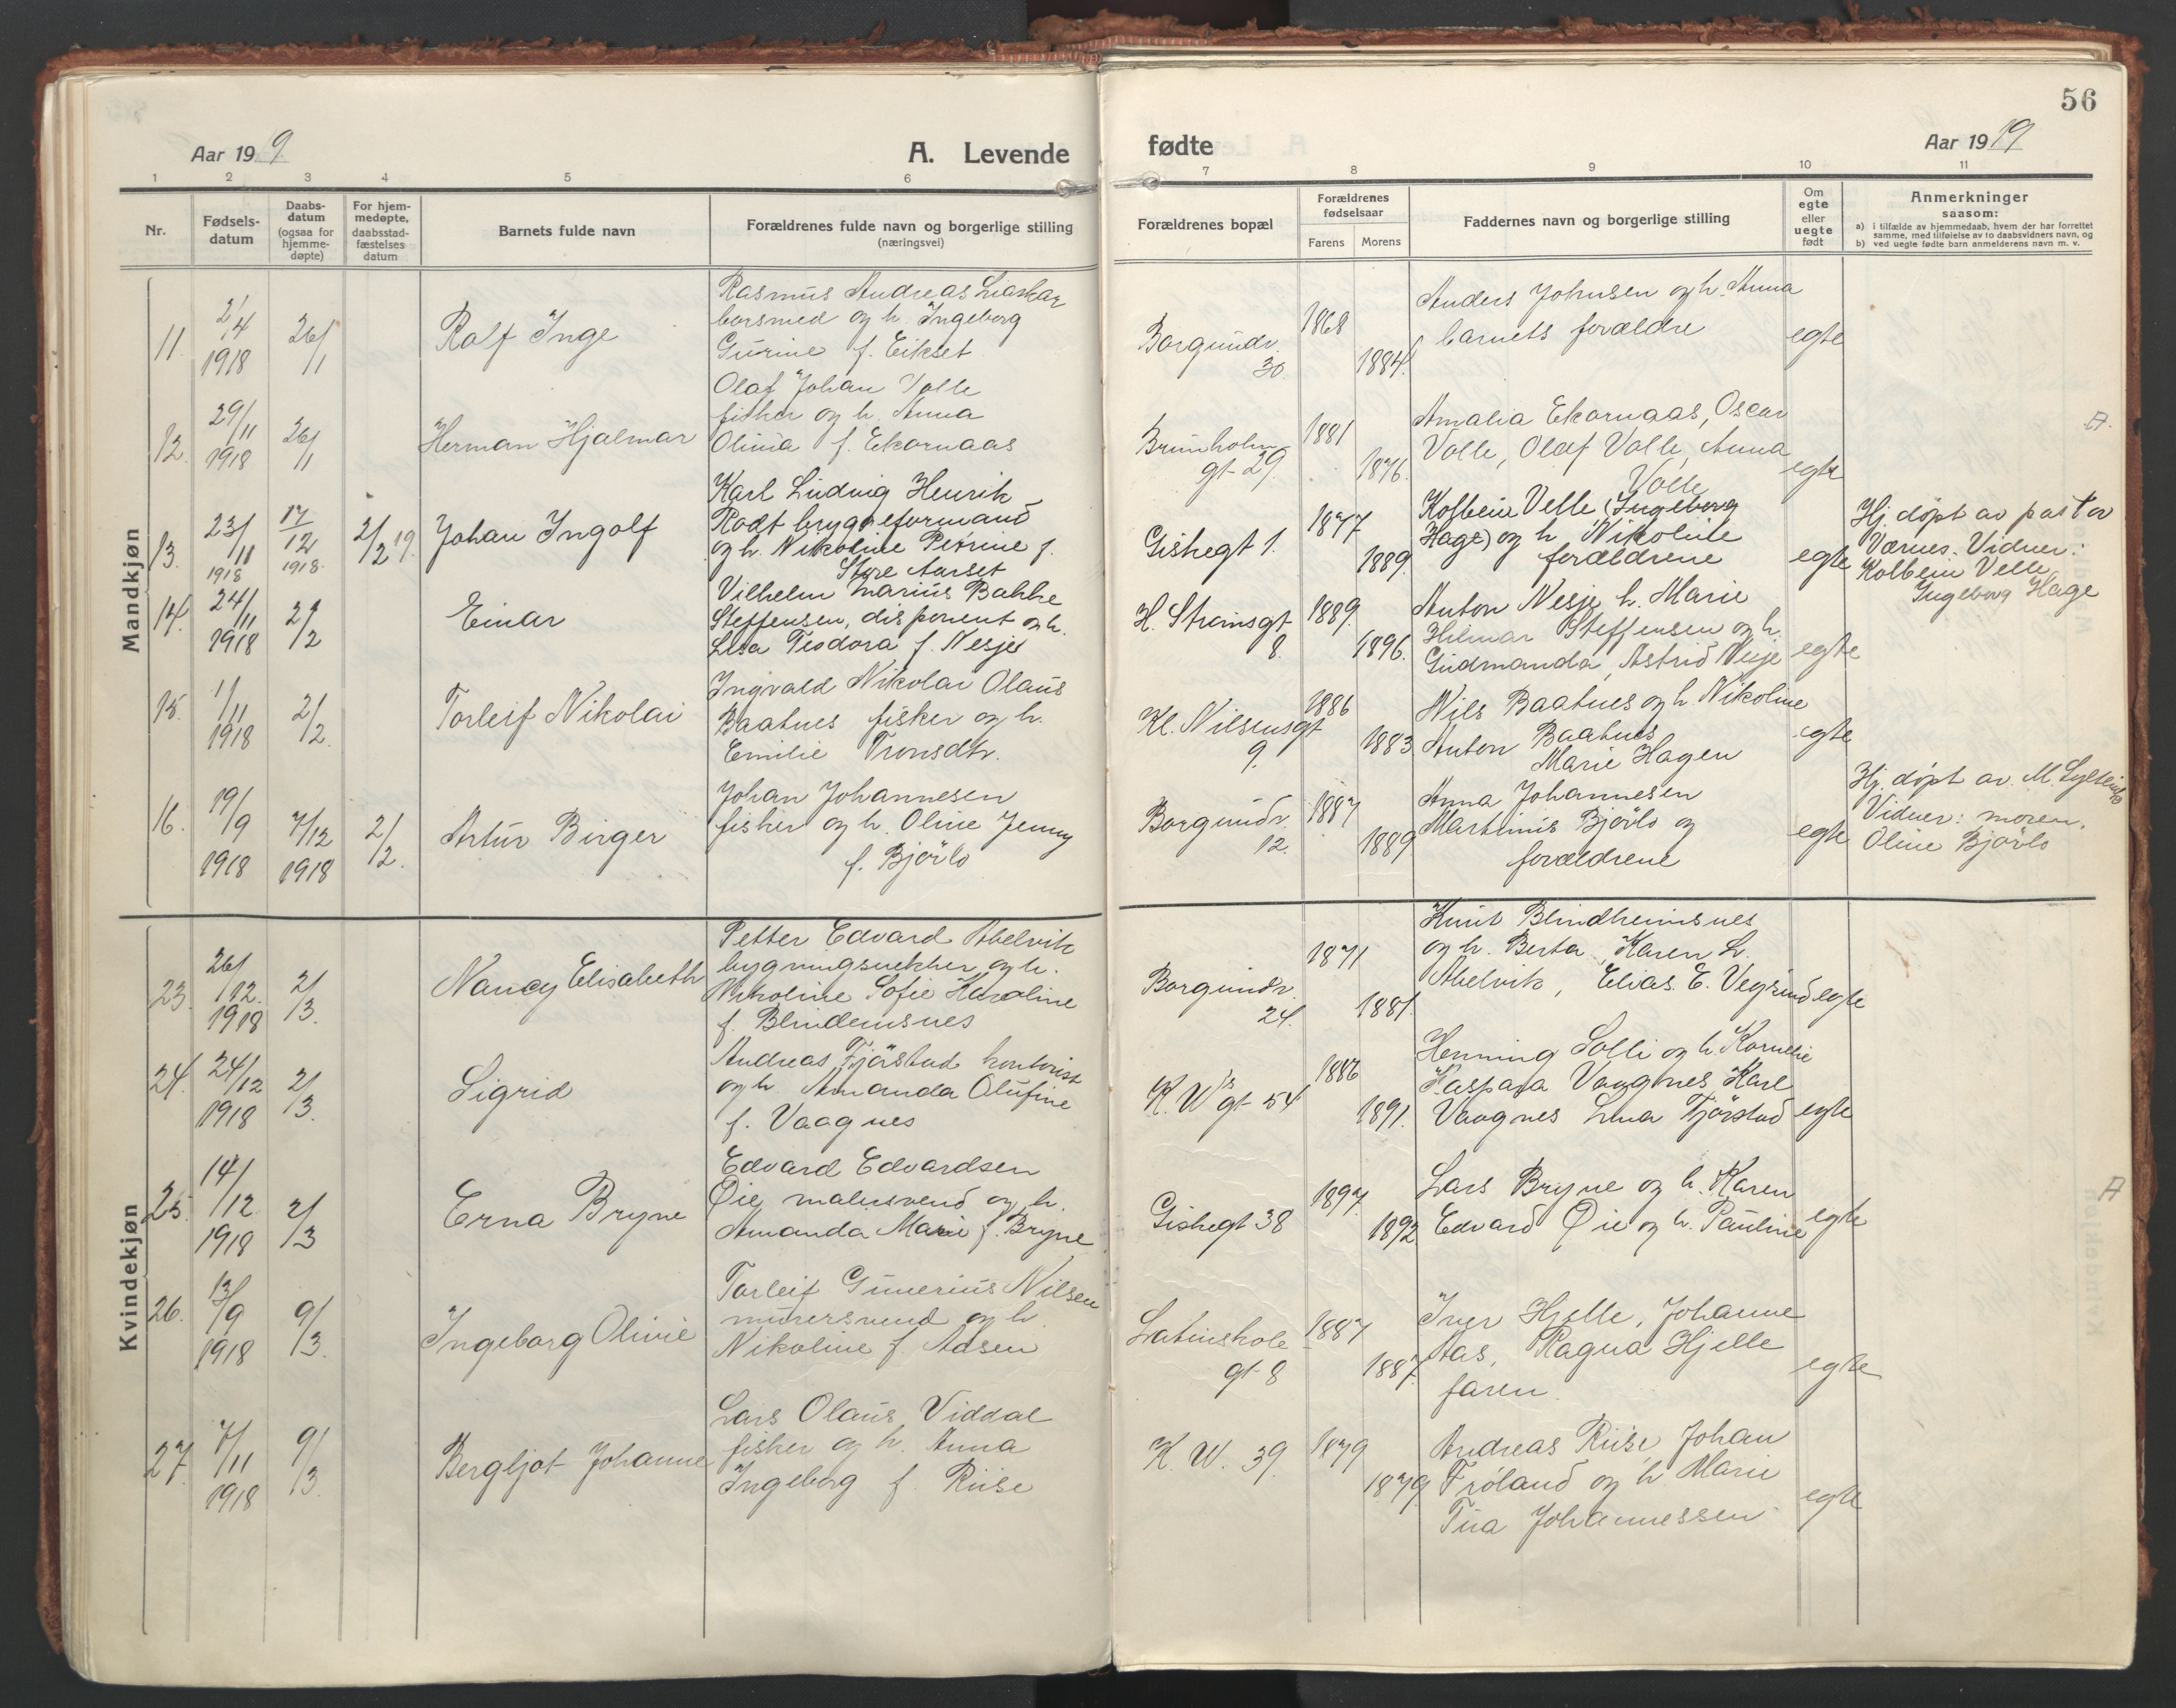 56
Aar 19 9.
A. Levende
fødte
Aar 19 19
1 2 3 4 5 6
7 8 9 10 11
Nr.
Fødsels-
datum
Daabs-
datum
(ogsaa for
hjemme-
døpte)
For hjem-
medøpte,
daabsstad-
fæstelses
datum
Barnets fulde navn
Forældrenes fulde navn og borgerlige stilling
(næringsvei)
Forældrenes bopæl
Forældrenes
fødselsaar
Farens Morens
Faddernes navn og borgerlige stilling
Om
egte
eller
uegte
født
Anmerkninger
saasom:
a) i tilfælde av hjemmedaab, hvem der har forrettet
samme, med tilføielse av to daabsvidners navn, og
b) ved uegte fødte barn anmelderens navn m. v.
Mandkjøn
11.
2/4
1918
26/1
Ralf Inge
Rasmus Andreas
og h. Ingeborg
Gurine f. Eikset
Borgundv.
30.
1868
1884.
Anders Johnsen og h. Anna
barnets forældre
egte
12.
29/11
1918
26/1
Herman Hjalmar
Olaf Johan Volle
fisker og h. Anna
Olina f. Ekornaas
Brunholm
gt 29.
1881
1876.
Amalia Ekornaas, Oscar
Volle, Olaf Volle, Anna
Volle
egte
A.
13.
23/11
1918
17/12
1918.
2/2 19.
Johan Ingolf
Karl Ludvig Henrik
Rødt bryggeformand
og h. Nikoline Petrine f.
Støre Aarset
Giskegt 1.
1877
1889.
Kolbein Velle (Ingeborg
Hage) og h Nikoline
forældrene
egte
Hj. døpt av pastor
Værnes. Vidner:
Kolbein Velle
Ingeborg Hage
14.
24/11
1918
2/2
Einar
Vilhelm Marius Bakke
Steffensen, disponent og h.
Lisa Teodora f. Nesje
H. Strømsgt
8.
1889.
1896.
Anton Nesje h. Marie
Hilmar Steffensen og h.
Gudmanda, Astrid Nesje
egte
15.
1/11
1918
2/2.
Torleif Nikolai
Ingvald Nikolai Olaus
Baatnes fisker og h.
Emilie Tronsdtr.
Kl. Nilsensgt
9.
1886
1883
Nils Baatnes og h. Nikoline
Anton Baatnes
Marie Hagen
egte
16.
19/9
1918
7/12
1918
2/2.
Artur Birger
Johan Johannesen
fisker og h. Oline Jenny
f. Bjørlo
Borgundv.
12.
1887
1889
Anna Johannesen
Martinus Bjørlo og
forældrene
egte
Hj. døpt av. M.
Vidner: moren.
Oline Bjørlo
Kvindekjøn
23.
26/12.
1918
2/3.
Nancy Elisabeth
Petter Edvard Abelvik
bygningssnekker og h.
Nikoline Sofie Karoline
f. Blindemsnes
Borgundv.
24.
1871
1881.
Knut Blindheimsnes
og h. Berta, Karen L.
Abelvik, Elias E. Vegsund
egte
24.
24/12
1918
2/3.
Sigrid
Andreas Fjørstad kontorist
og h. Amanda Olufine
f. Vaagnes
K. W's gt 54
1886
1891.
Henning Solli og h. Kornelie
Kaspara Vaagnes, Karl
Vaagnes Lina Fjørstad
egte
25.
14/12
1918
2/3
Erna Bryne
Edvard Edvardsen
Øie, malersvend og h.
Amanda Marie f. Bryne
Giskegt 38
1897.
1892.
Lars Bryne og h. Karen
Edvard Øie og h. Pauline
egte
A
26.
13/9
1918
9/3.
Ingeborg Olivie
Torleif Gunerius Nilsen
murersvend og h.
Nikoline f. Aasen
Latinskole
gt 8
1887
1887.
Iver Hjelle, Johanne
Aas, Ragna Hjelle
faren.
egte
27.
7/11
1918
9/3.
Bergljot Johanne
Lars Olaus Viddal
fisker og h. Anna
Ingeborg f. Riise
K. W. 39.
1879
1879.
Andreas Riise, Johan
Froland og h Marie
Tina Johannessen
egte